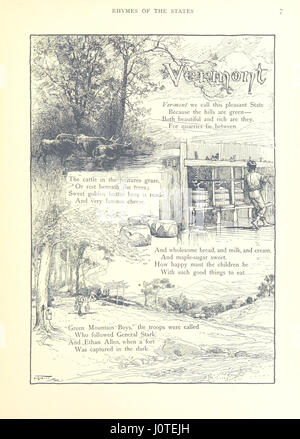 RHYMES OF THE STATES
7
Vermont
Vermont we call this pleasant State
Because the hills are green—
Both beautiful and rich are they,
For quarries lie between
The cattle in the pastures graze,
Or rest beneath the trees;
Sweet golden butter here is made
And very famous cheese.
And wholesome bread, and milk, and cream,
And maple-sugar sweet.
How happy must the children be
With such good things to eat
"Green Mountain Boys," the troops were called
Who followed General Stark,
And Ethan Allen, when a fort
Was captured in the dark
alamy stock photo
J0TEJH